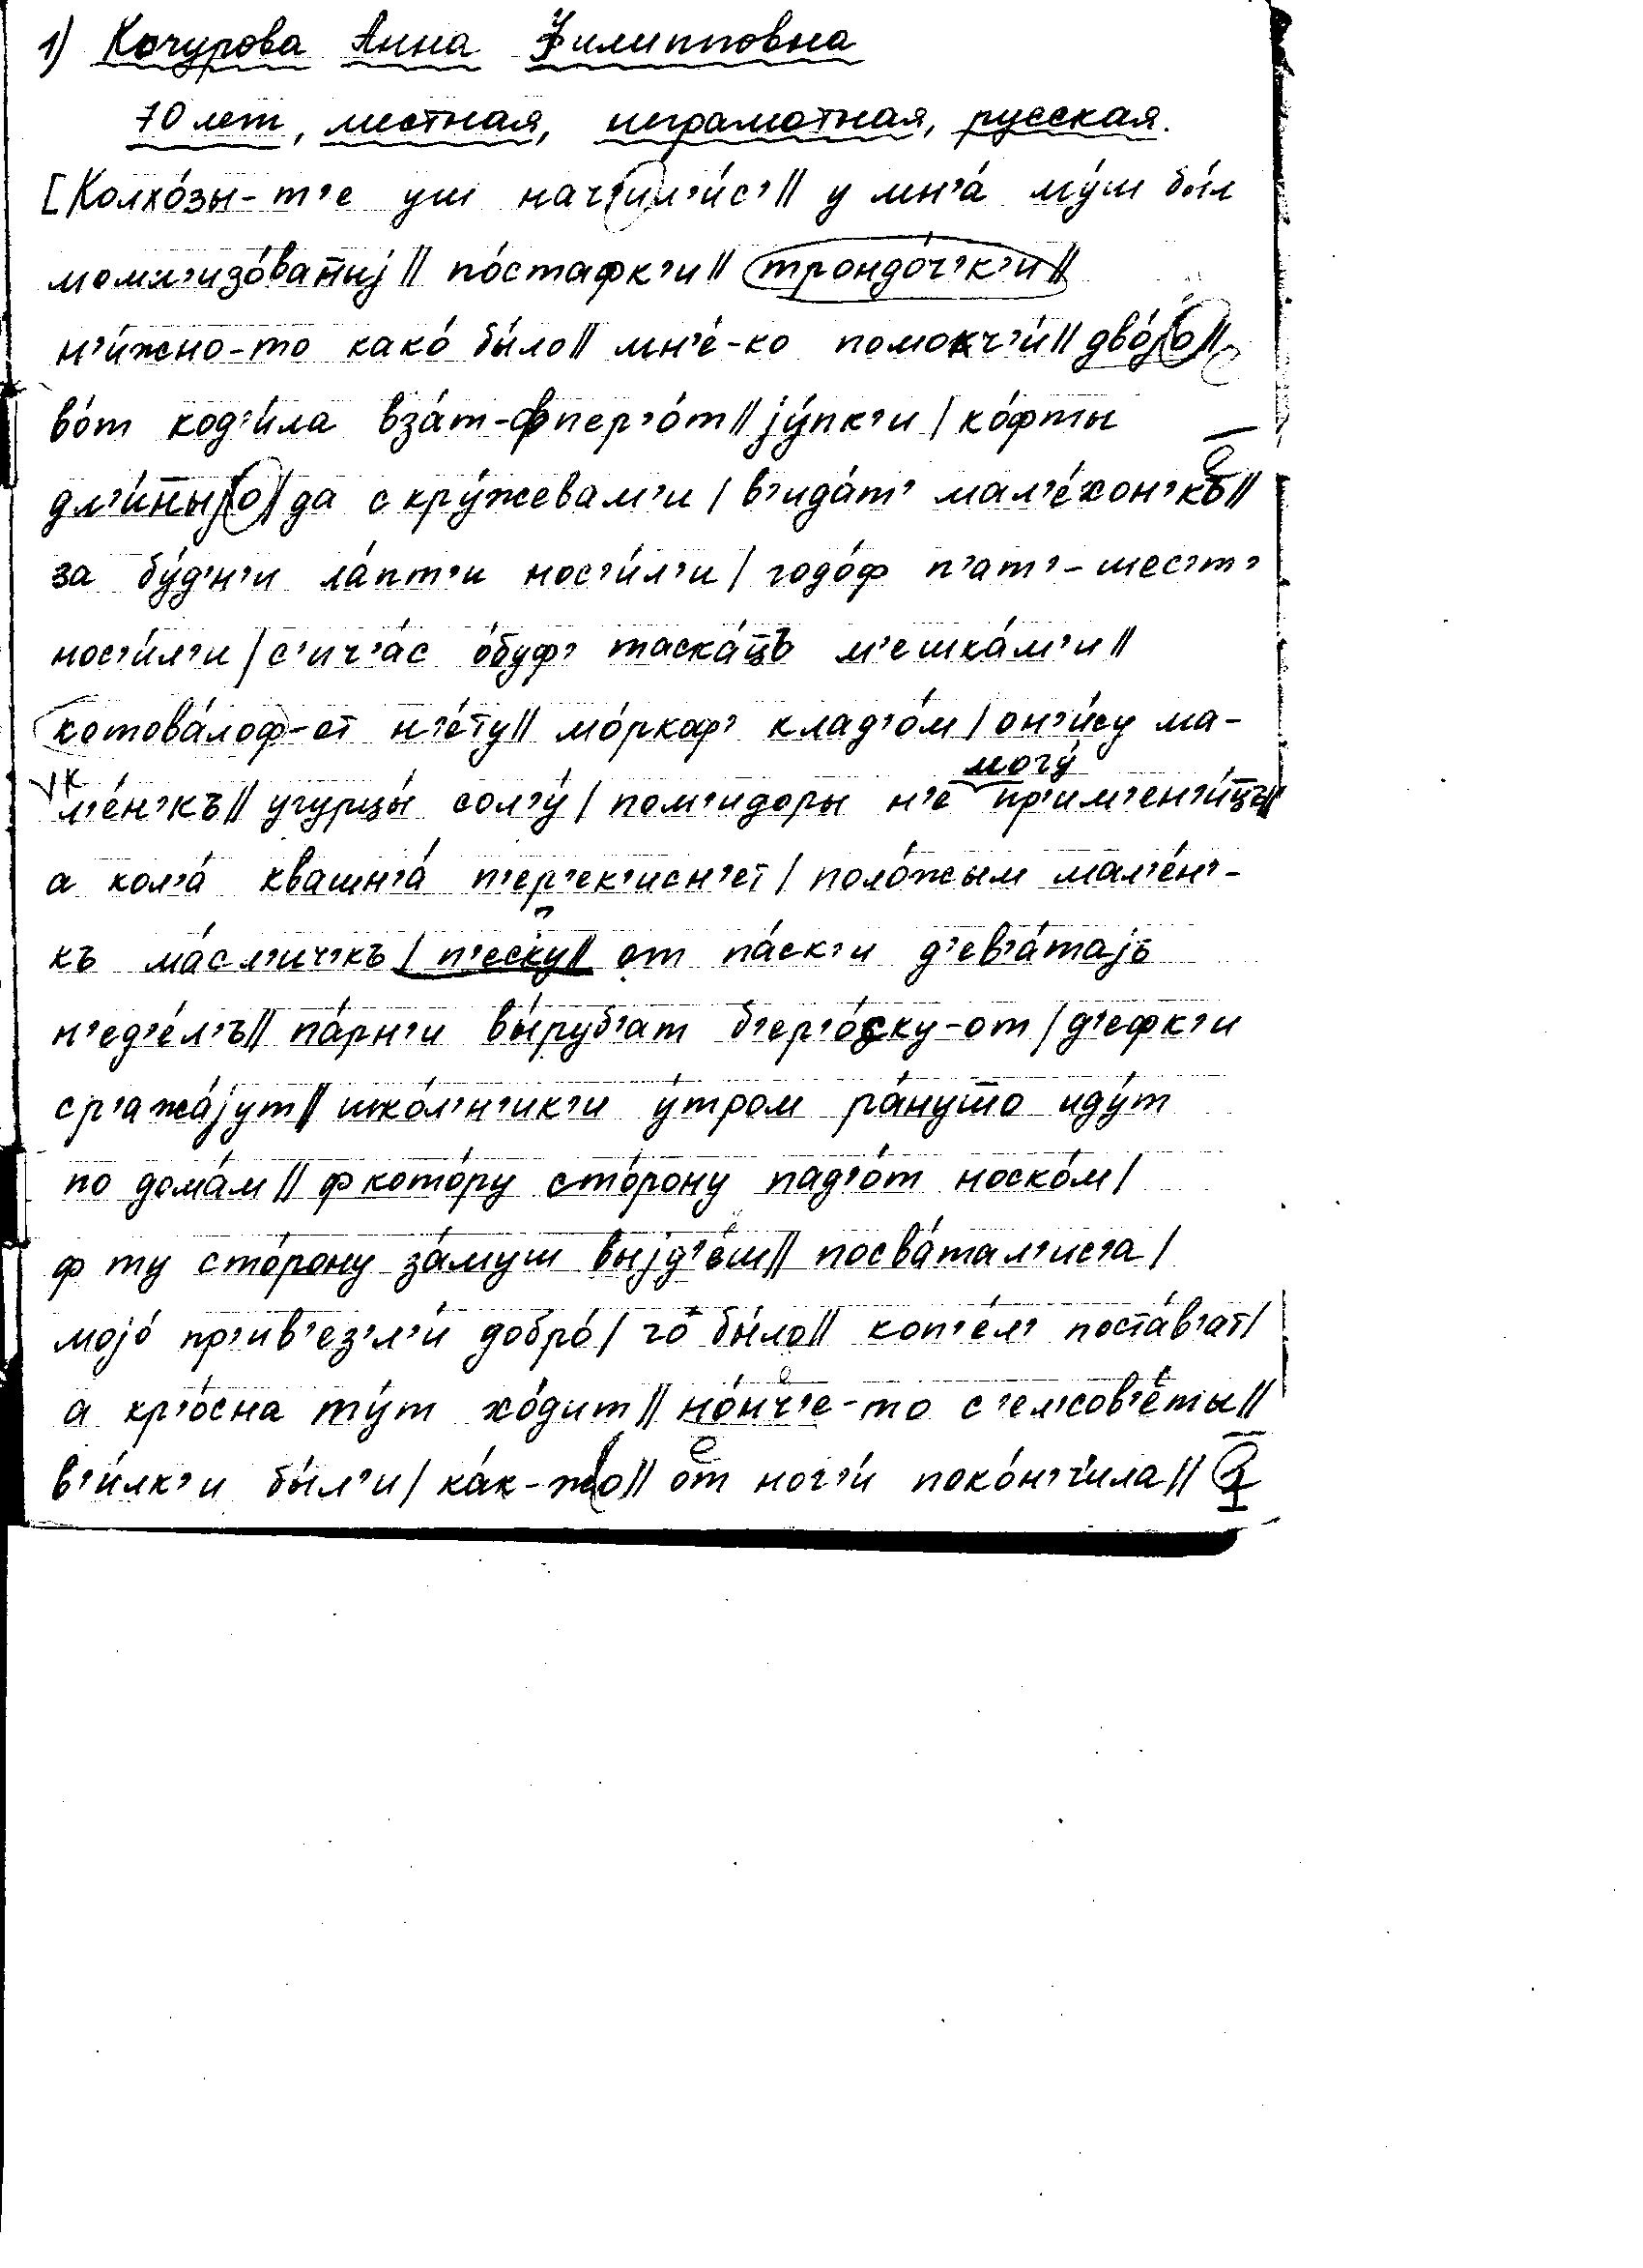 1) Кочурова Анна Филипповна
70 лет, местная, неграмотная, русская.
[Колхо́зы-т'е уш нач'ил'и́с'// у мн'а́ му́ш бы́л
момл'изо́ван̄иј// по́стафк'и// трондо́ч'к'и//
н'и́жно-то како́ бы́ло// мн'е́-ко помокч'и́// дво́јо//
во́т ход'и́ла вза́т-фпер'о́т// јýпк'и/ ко́фты
дл'и́н̄ыјо// да с крýжевам'и/ в'ида́т' мал'е́хон'къ//
за бýд'н'и ла́пт'и нос'и́л'и/ годо́ф п'ат'-шес'т'
нос'и́л'и/ с'ич'а́с о́буф' таска́ц̄ъ м'ешка́м'и//
котова́лоф-от н'е́ту// мо́ркаф'клад'о́м/ он'и́су ма-
л'е́н'къ// угурцы́ сол'ý/ пом'идоры н'е могý пр'им'ен'и́ц̄ъ//
а кол'а́ квашн'а́ п'ер'ек'исн'ет/ поло́жым мал'е́н'-
къ ма́сл'ич'къ/ п'еску// от па́ск'и д'ев'а́тајъ
н'ед'е́л'ъ// па́рн'и вы́руб'ат б'ер'о́ску-от/ д'ефк'и
ср'ажа́јут// шко́л'н'ик'и ýтром ра́нуш̄о идýт
по дома́м// ф кото́ру сто́рону пад'о́т носко́м/
ф ту сто́рону за́муш выјд'е́ш// посва́тал'ис'а/
мојо́ пр'ив'ез'л'и́ добро́/ чо́ бы́ло// коп'е́л' поста́в'ат/
а кр'о́сна тýт хо́дит// но́нч'е-то с'ел'сов'е́ты//
в'и́лк'и бы́л'и/ ка́к-жо// от ног'и́ поко́н'ч'ила//